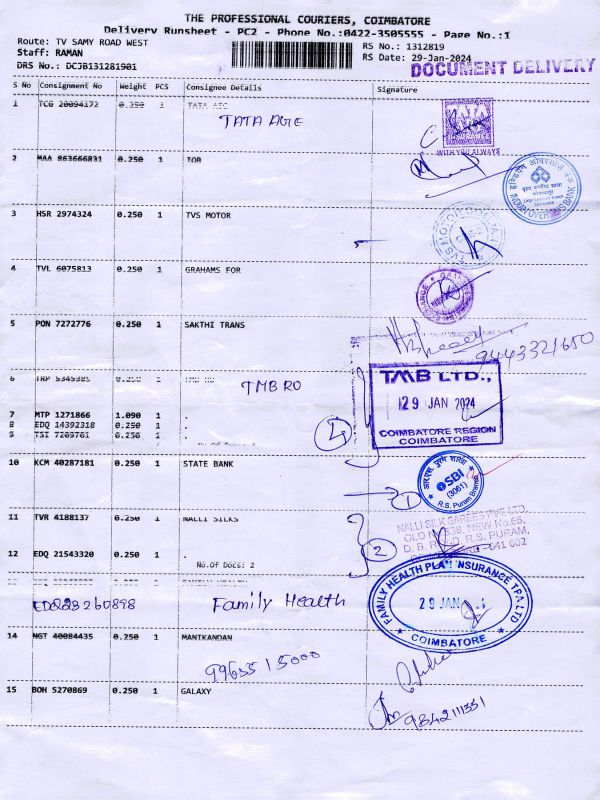 THE PROFESSIONAL COURIERS, COIMBATORE
Delivery Runsheet - PC2 - Phone No.:0422-3505555 - Page No.:1
Route: TV SAMY ROAD WEST
RS No.: 1312819
Staff: RAMAN
RS Date: 29-Jan-2024
DRS No.: DCJB131281901
DOCUMENT DELIVERY
S No Consignment No Weight PCS Consignee Details Signature
1 TCG 20094172 0.250 1 TATA AIG
TATA AGE
TATA
INSURANCE
WITH YOU ALWAYS
2 MAA 863666831 0.250 1 IOB
INDIAN OVERSEAS BANK
3 HSR 2974324 0.250 1 TVS MOTOR
TVS MOTOR COMPANY
4 TVL 6075813 0.250 1 GRAHAMS FOR
5 PON 7272776 0.250 1 SAKTHI TRANS
9443321650
6 TRP 5345385 0.250 1 TMB RO
TMB RO
TMB LTD.,
29 JAN 2024
COIMBATORE REGION
COIMBATORE
7 MTP 1271866 1.090 1 .
8 EDQ 14392318 0.250 1 .
9 TSI 7269761 0.250 1 .
4
10 KCM 40287181 0.250 1 STATE BANK
SBI
(3061)
R.S. Puram Branch
1
11 TVR 4188137 0.250 1 NALLI SILKS
NALLI SILK SAREES PVT LTD,
NEW No.66,
R.S. PURAM,
641 002
12 EDQ 21543320 0.250 1 .
No.Of Docs: 2
2
EDQ23260898 Family Health
FAMILY HEALTH PLAN INSURANCE TPA LTD
29 JAN
COIMBATORE
14 NGT 40084435 0.250 1 MANIKANDAN
9965515000
15 BOH 5270869 0.250 1 GALAXY
9842111351